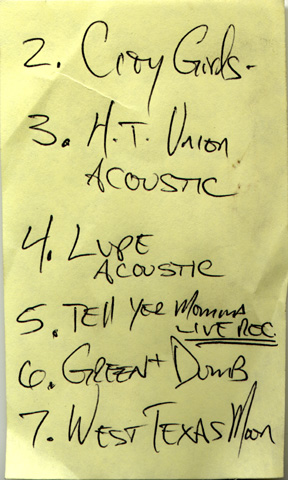 2. City Girls-
3. H.T. Union
ACOUSTIC
4. LUPE
ACOUSTIC
5. TELL YER Momma
LIVE REC.
6. GREEN + DUMB
7. WEST TEXAS Moon